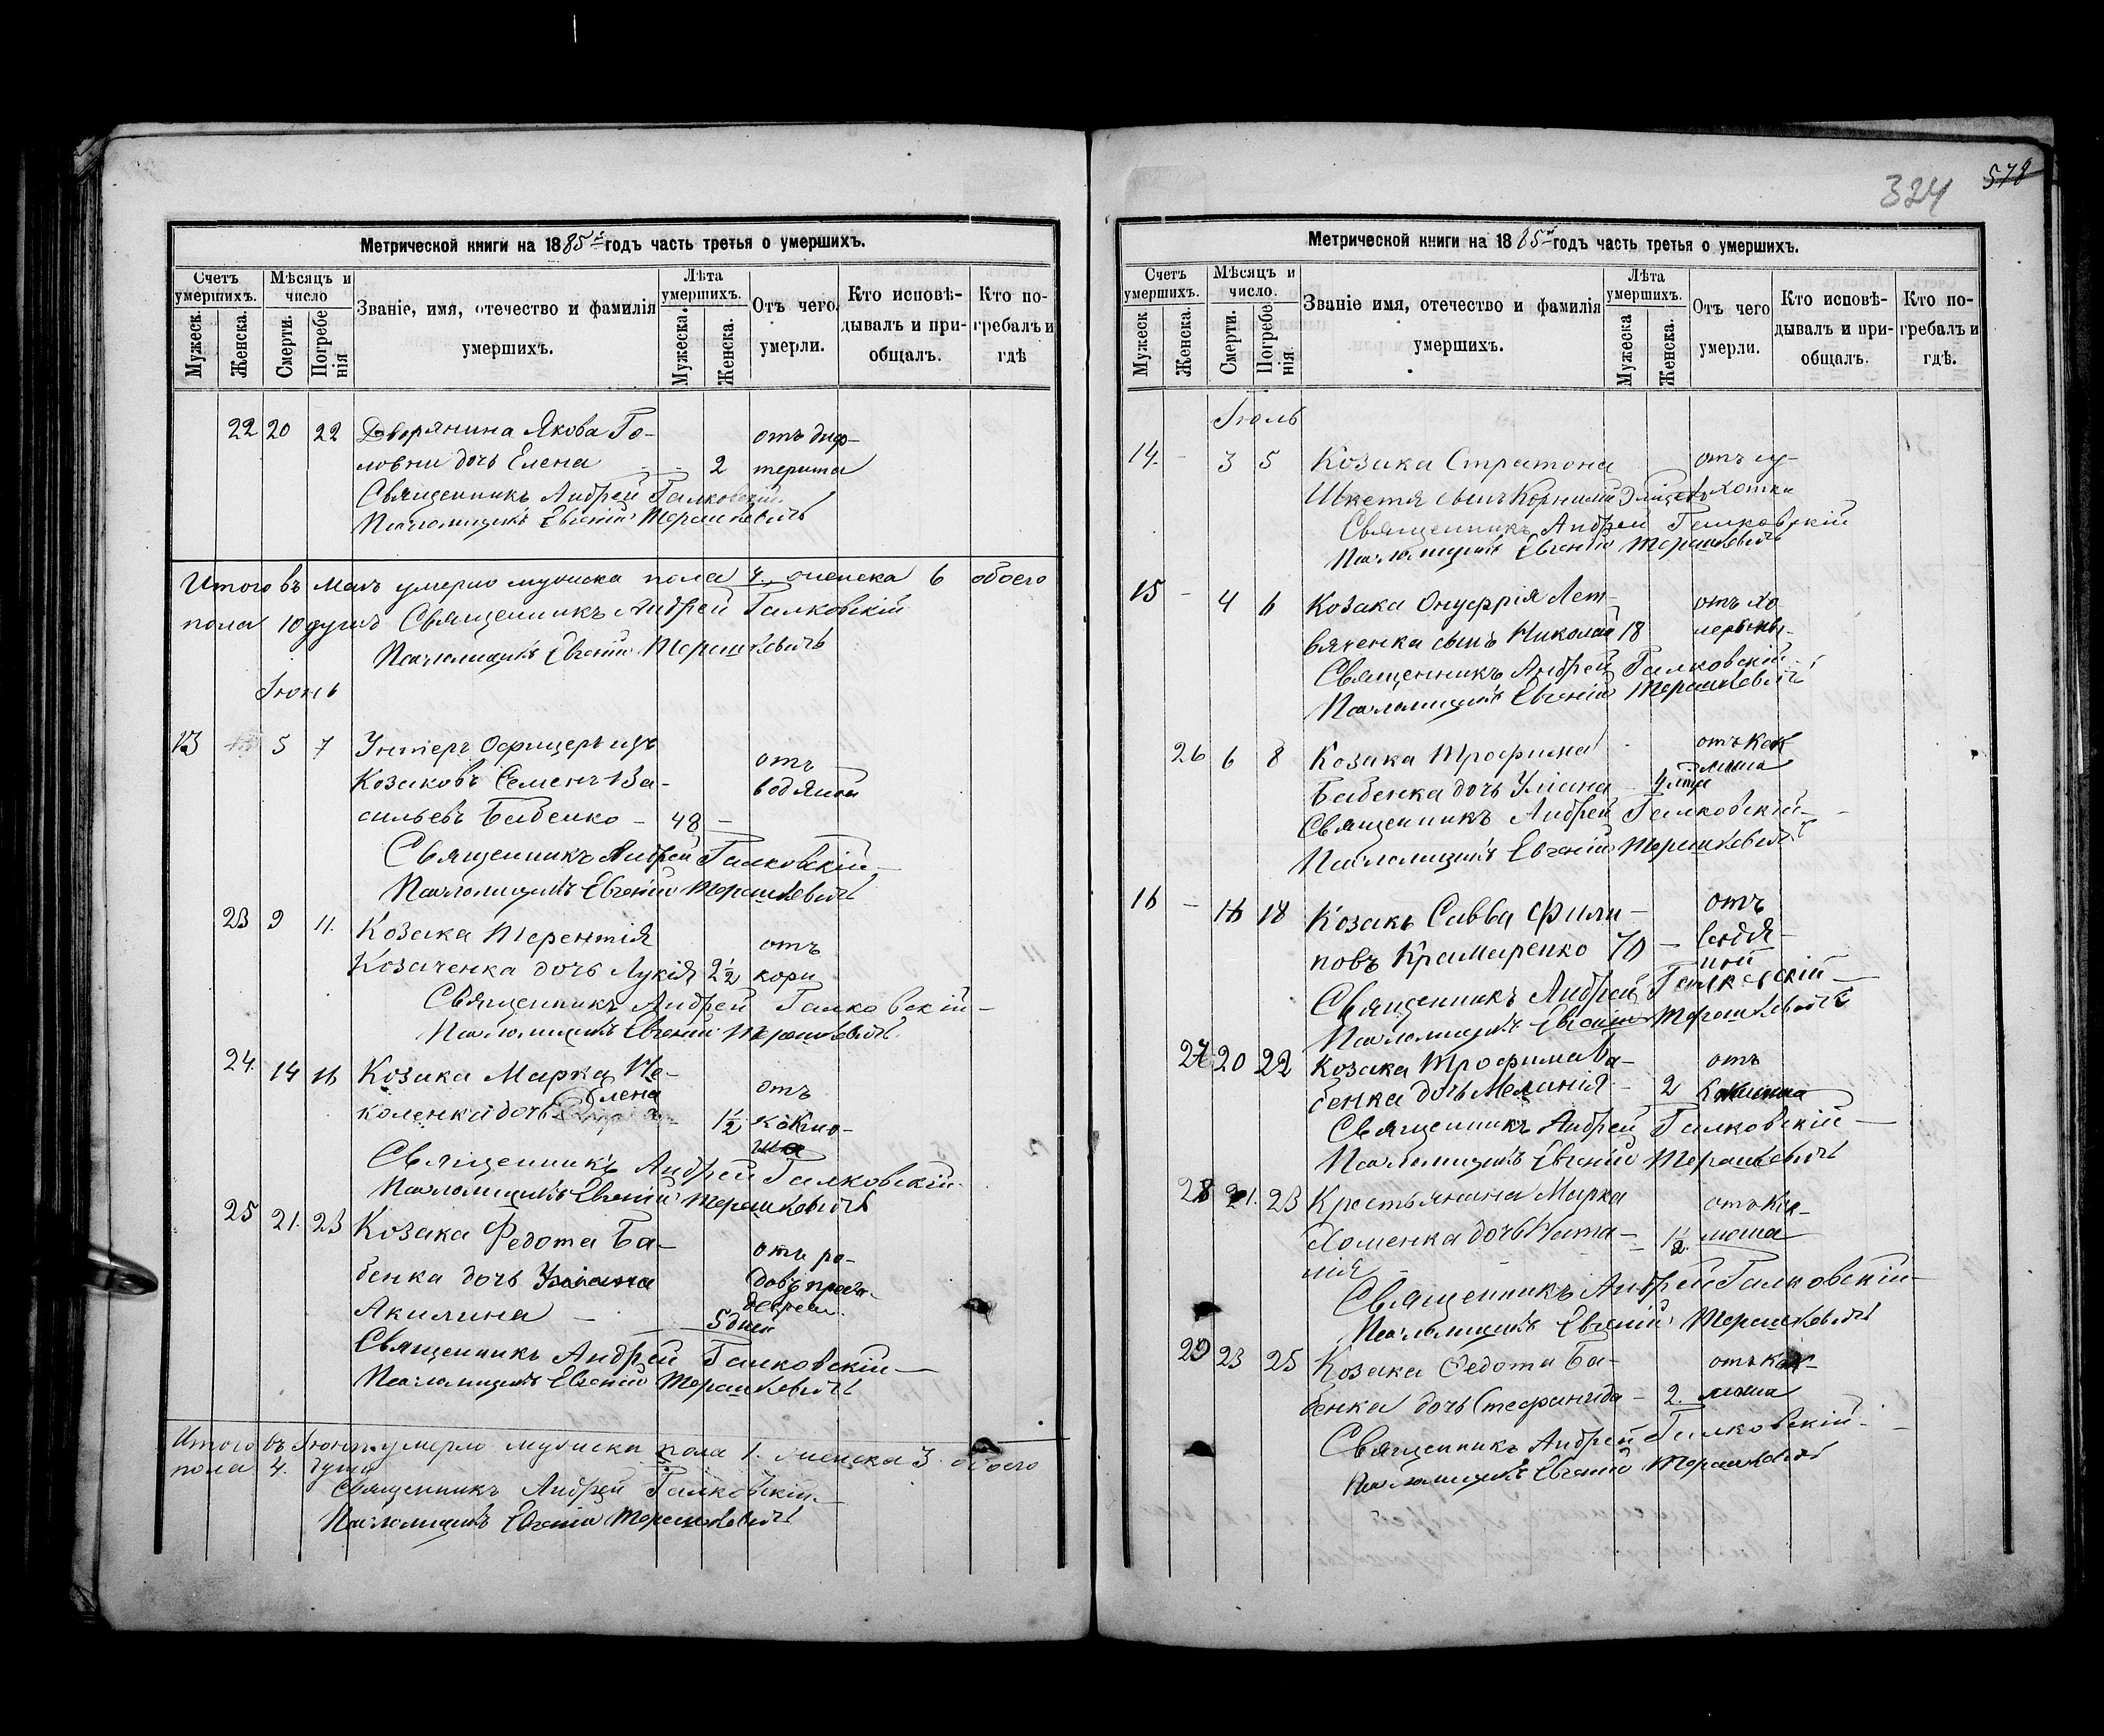 324 578
Метрической книги на 1885й годъ часть третья о умершихъ.
Счетъ умершихъ.
Мужеск.
Женска.
Мѣсяцъ и число
Смерти.
Погребенія
Званіе, имя, отечество и фамилія умершихъ.
Лѣта умершихъ.
Мужеска.
Женска.
Отъ чего умерли.
Кто исповѣдывалъ и пріобщалъ.
Кто погребалъ и гдѣ
22 20 22 Дворянина Якова Го- отъ диф-
ловни дочь Елена 2 терита
Священникъ Андрей Галковскій
Псаломщикъ Евгеній Терешкевичъ
Итого въ Маѣ умерло мужеска пола 4. женска 6 обоего
пола 10 душъ Священникъ Андрей Галковскій
Псаломщикъ Евгеній Терешкевичъ
Іюнь
13 5 7 Унтеръ Офицеръ изъ отъ
Козаковъ Семенъ Ва- водяной
сильевъ Бабенко - 48 -
Священникъ Андрей Галковскій
Псаломщикъ Евгеній Терешкевичъ
23 9 11. Козака Терентія отъ
Козаченка дочь Лукія 2½ кори
Священникъ Андрей Галковскій
Псаломщикъ Евгеній Терешкевичъ
24. 14 16 Козака Марка Не- отъ
коленка дочь Елена 1½ коклю-
ша
Священникъ Андрей Галковскій
Псаломщикъ Евгеній Терешкевичъ
25 21. 23 Козака Федота Ба- отъ ро-
бенка дочь Уліана довъ
Акилина - 5 дней
Священникъ Андрей Галковскій
Псаломщикъ Евгеній Терешкевичъ
Итого въ Іюнѣ умерло мужеска пола 1. женска 3. обоего
пола 4. души
Священникъ Андрей Галковскій
Псаломщикъ Евгеній Терешкевичъ
Метрической книги на 1885й годъ часть третья о умершихъ.
Счетъ умершихъ.
Мужеск.
Женска.
Мѣсяцъ и число.
Смерти.
Погребенія.
Званіе имя, отечество и фамилія умершихъ.
Лѣта умершихъ.
Мужеска
Женска.
Отъ чего умерли.
Кто исповѣдывалъ и пріобщалъ.
Кто погребалъ и гдѣ.
Іюль
14. - 3 5 Козака Стратона отъ су-
сынъ Корнилій 9 мѣсец. хотки
Священникъ Андрей Галковскій
Псаломщикъ Евгеній Терешкевичъ
15 - 4 6 Козака Онуфрія Лет- отъ хо
вяченка сынъ Николай 18 леры
Священникъ Андрей Галковскій
Псаломщикъ Евгеній Терешкевичъ
26 6 8 Козака Трофима отъ кок
Бабенка дочь Уліана 4 люша
Священникъ Андрей Галковскій
Псаломщикъ Евгеній Терешкевичъ
16 - 16 18 Козакъ Савва Фили- отъ
повъ Крамаренко 70 - водя-
ной
Священникъ Андрей Галковскій
Псаломщикъ Евгеній Терешкевичъ
27 20 22 Козака Трофима Ба- отъ
бенка дочь Меланія - 2 коклюша
Священникъ Андрей Галковскій
Псаломщикъ Евгеній Терешкевичъ
28 21. 23 Крестьянина Марка отъ кок-
Хоменка дочь Ната- 1½. люша
лія
Священникъ Андрей Галковскій
Псаломщикъ Евгеній Терешкевичъ
29 23 25 Козака Федота Ба- отъ кок-
бенка дочь Стефанида - 2. люша
Священникъ Андрей Галковскій
Псаломщикъ Евгеній Терешкевичъ